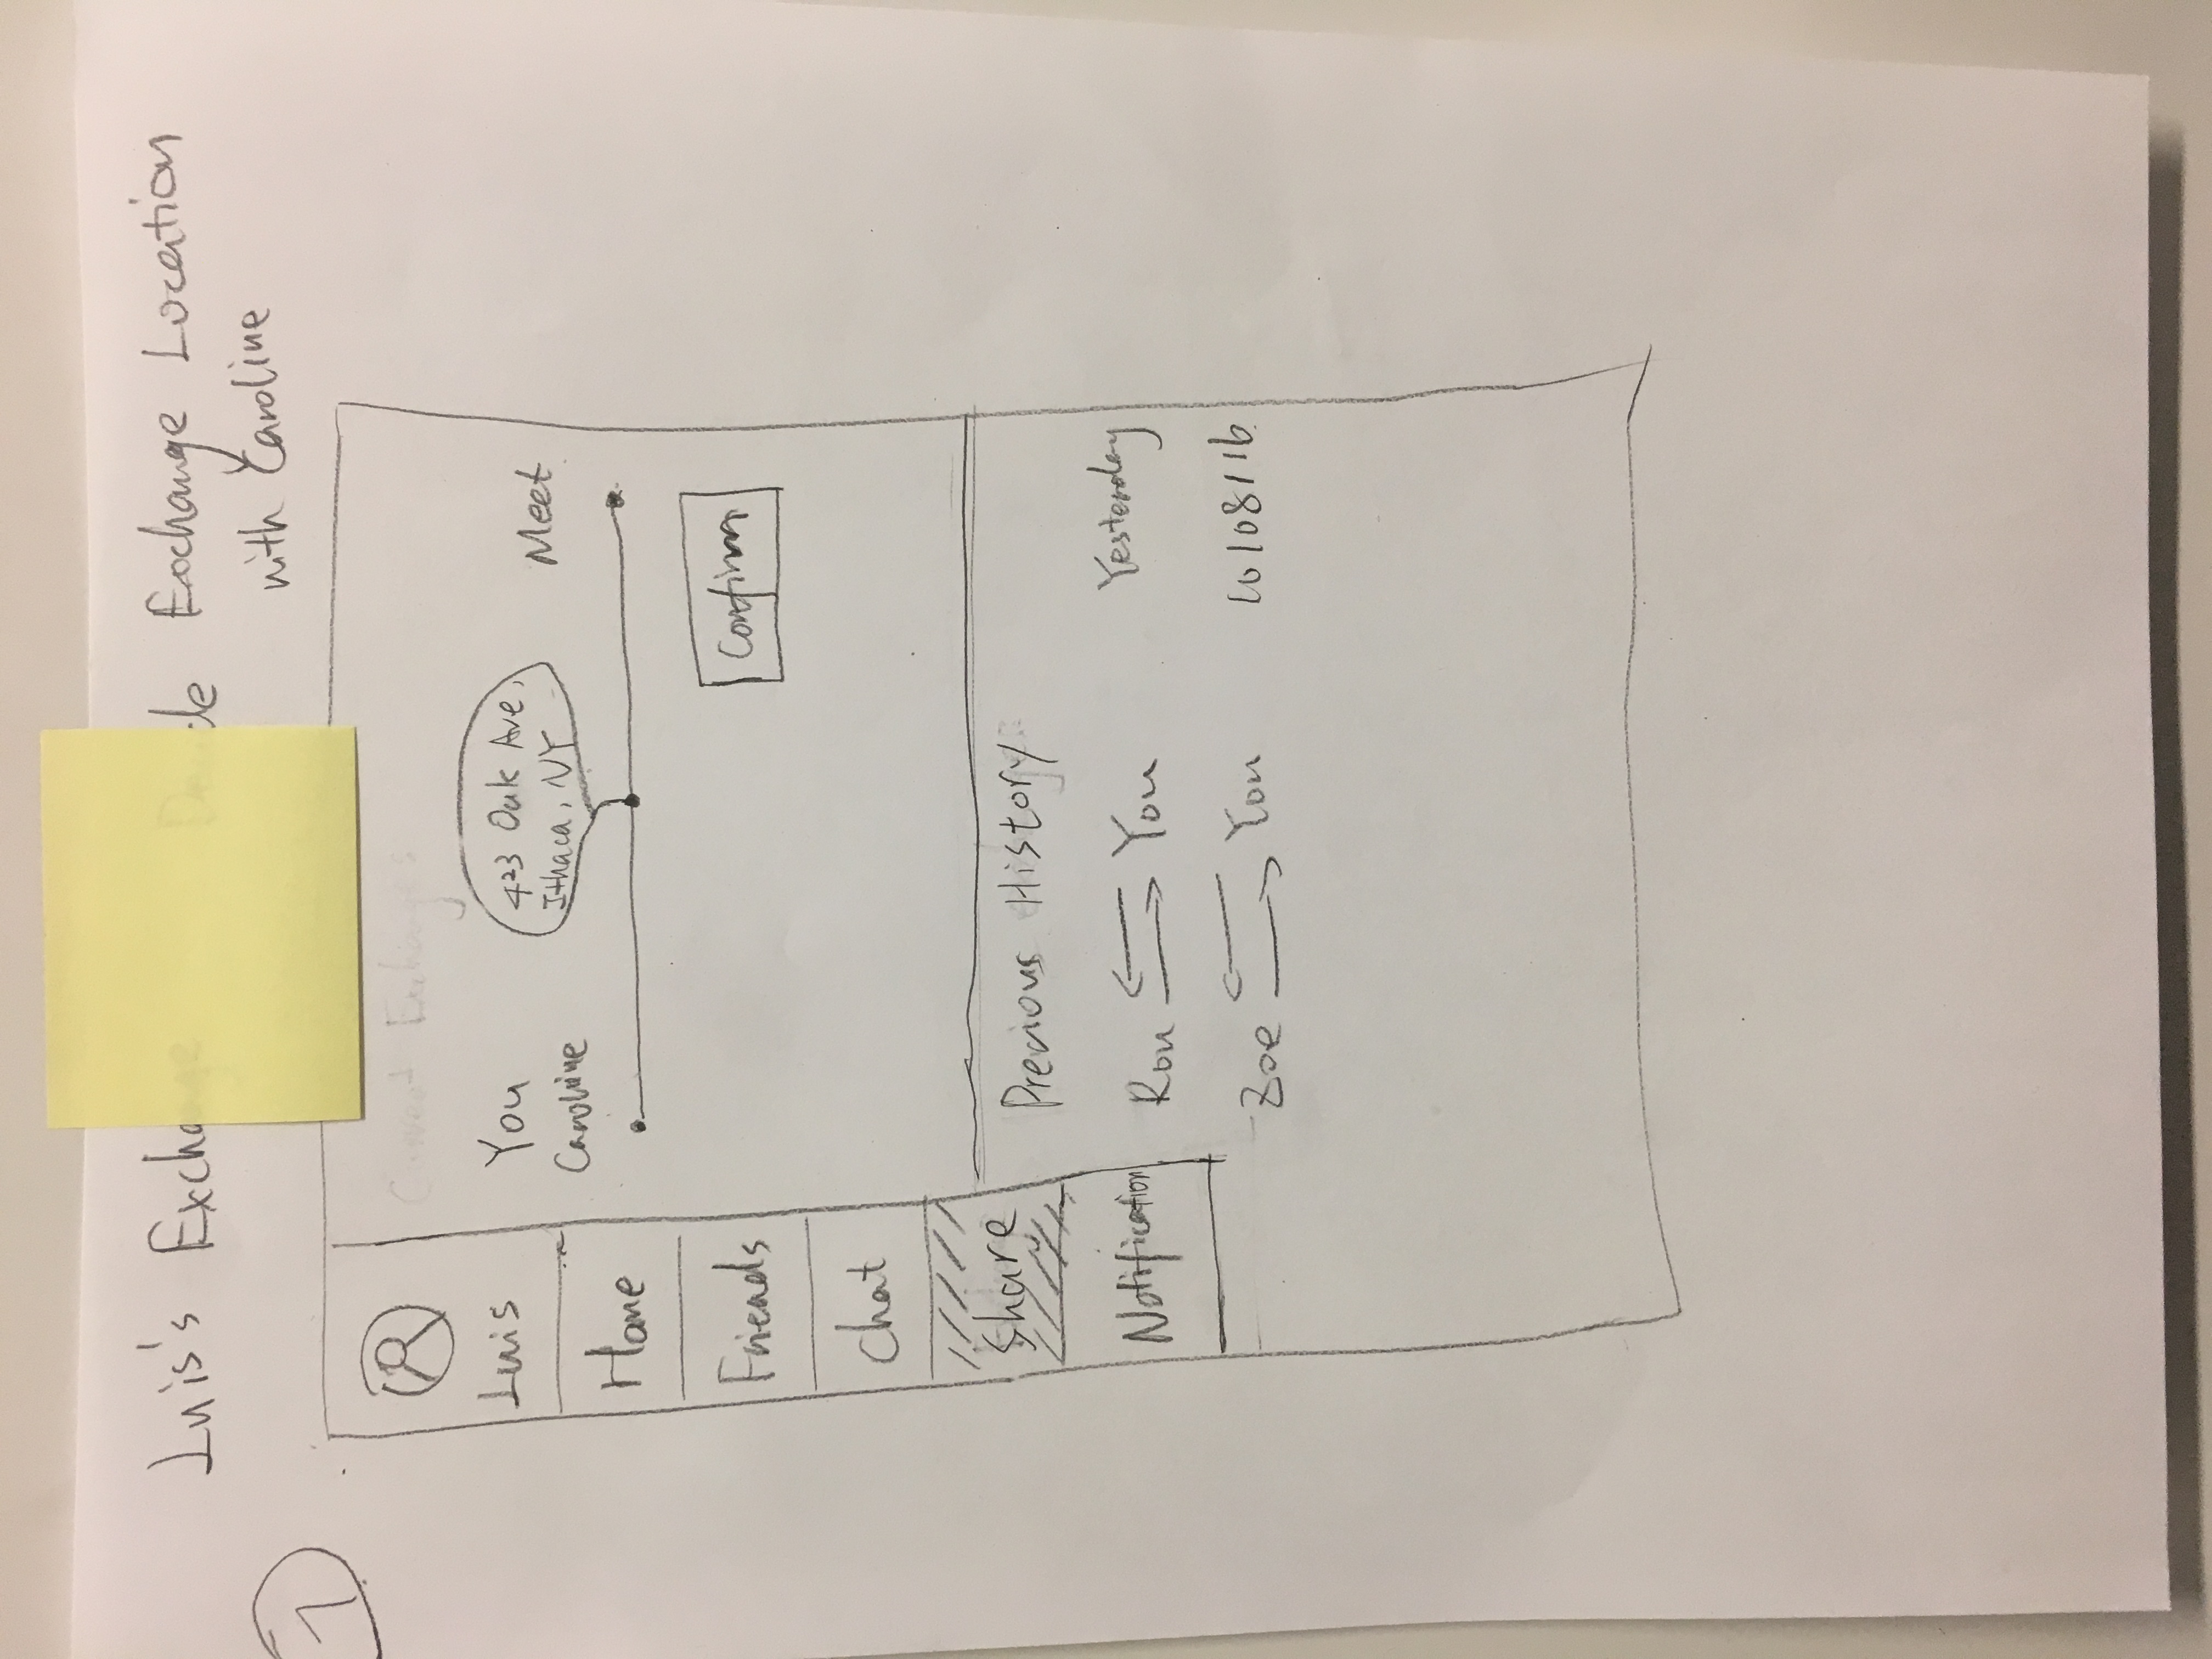 Luis's Exchange Decide Exchange Location
with Caroline
7
Luis
Home
Friends
Chat
Share
Notification
Current Exchanges
You
Caroline
423 Oak Ave,
Ithaca, NY
Meet
Confirm
Previous History
Ron You Yesterday
Zoe You 10/08/16